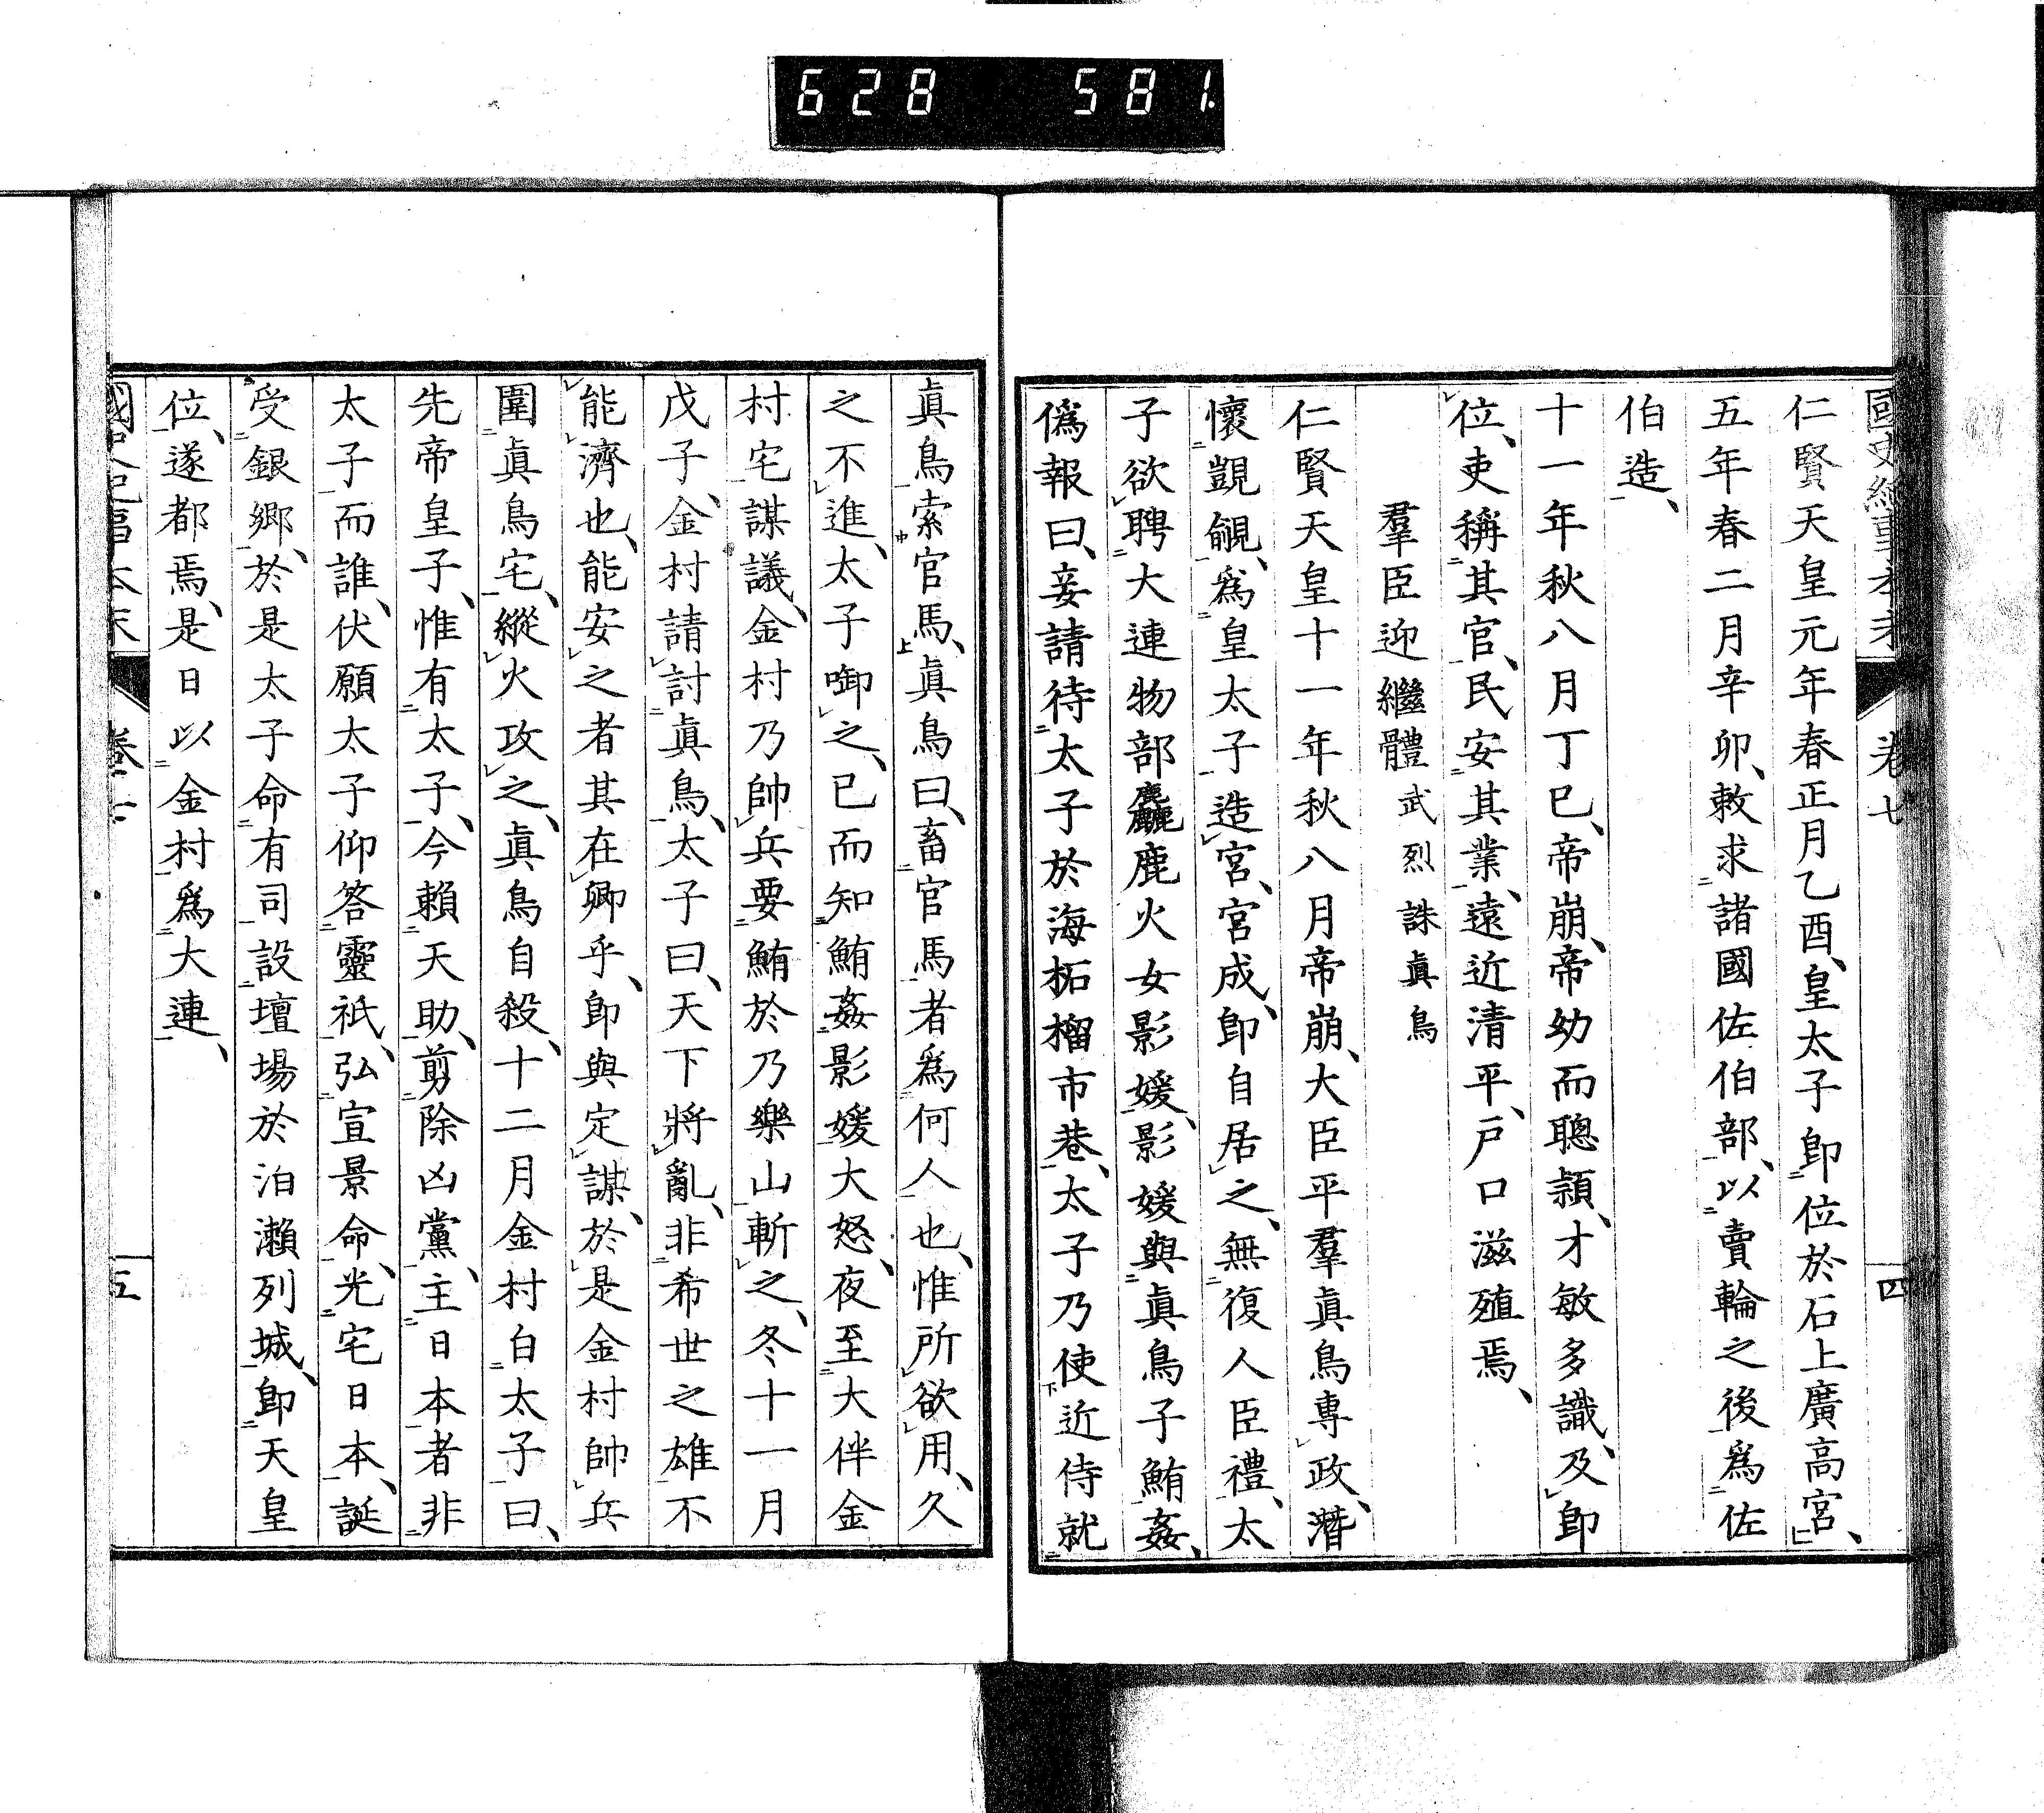 628 581.
國史紀事本末 卷七 四
仁賢天皇元年春正月乙酉、皇太子卽位於石上廣高宮、
五年春二月辛卯、敕求諸國佐伯部、以賣輪之後爲佐
伯造、
十一年秋八月丁巳、帝崩、帝幼而聰穎、才敏多識、及卽
位、吏稱其官、民安其業、遠近清平、戶口滋殖焉、
羣臣迎繼體 武烈誅眞鳥
仁賢天皇十一年秋八月帝崩、大臣平羣眞鳥專政、潛
懷覬覦、爲皇太子造宮、宮成、卽自居之、無復人臣禮、太
子欲聘大連物部麤鹿火女影媛、影媛與眞鳥子鮪姦、
僞報曰、妾請待太子於海柘榴市巷、太子乃使近侍就
眞鳥索官馬、眞鳥曰、畜官馬者爲何人也、惟所欲用、久
之不進、太子啣之、已而知鮪姦影媛大怒、夜至大伴金
村宅謀議、金村乃帥兵要鮪於乃樂山斬之、冬十一月
戊子、金村請討眞鳥、太子曰、天下將亂、非希世之雄不
能濟也、能安之者其在卿乎、卽與定謀、於是金村帥兵
圍眞鳥宅、縱火攻之、眞鳥自殺、十二月金村白太子曰、
先帝皇子、惟有太子、今賴天助、剪除凶黨、主日本者非
太子而誰、伏願太子仰答靈祇、弘宣景命、光宅日本、誕
受銀鄉、於是太子命有司設壇場於泊瀨列城、卽天皇
位、遂都焉、是日以金村爲大連、
國史紀事本末 卷七 五